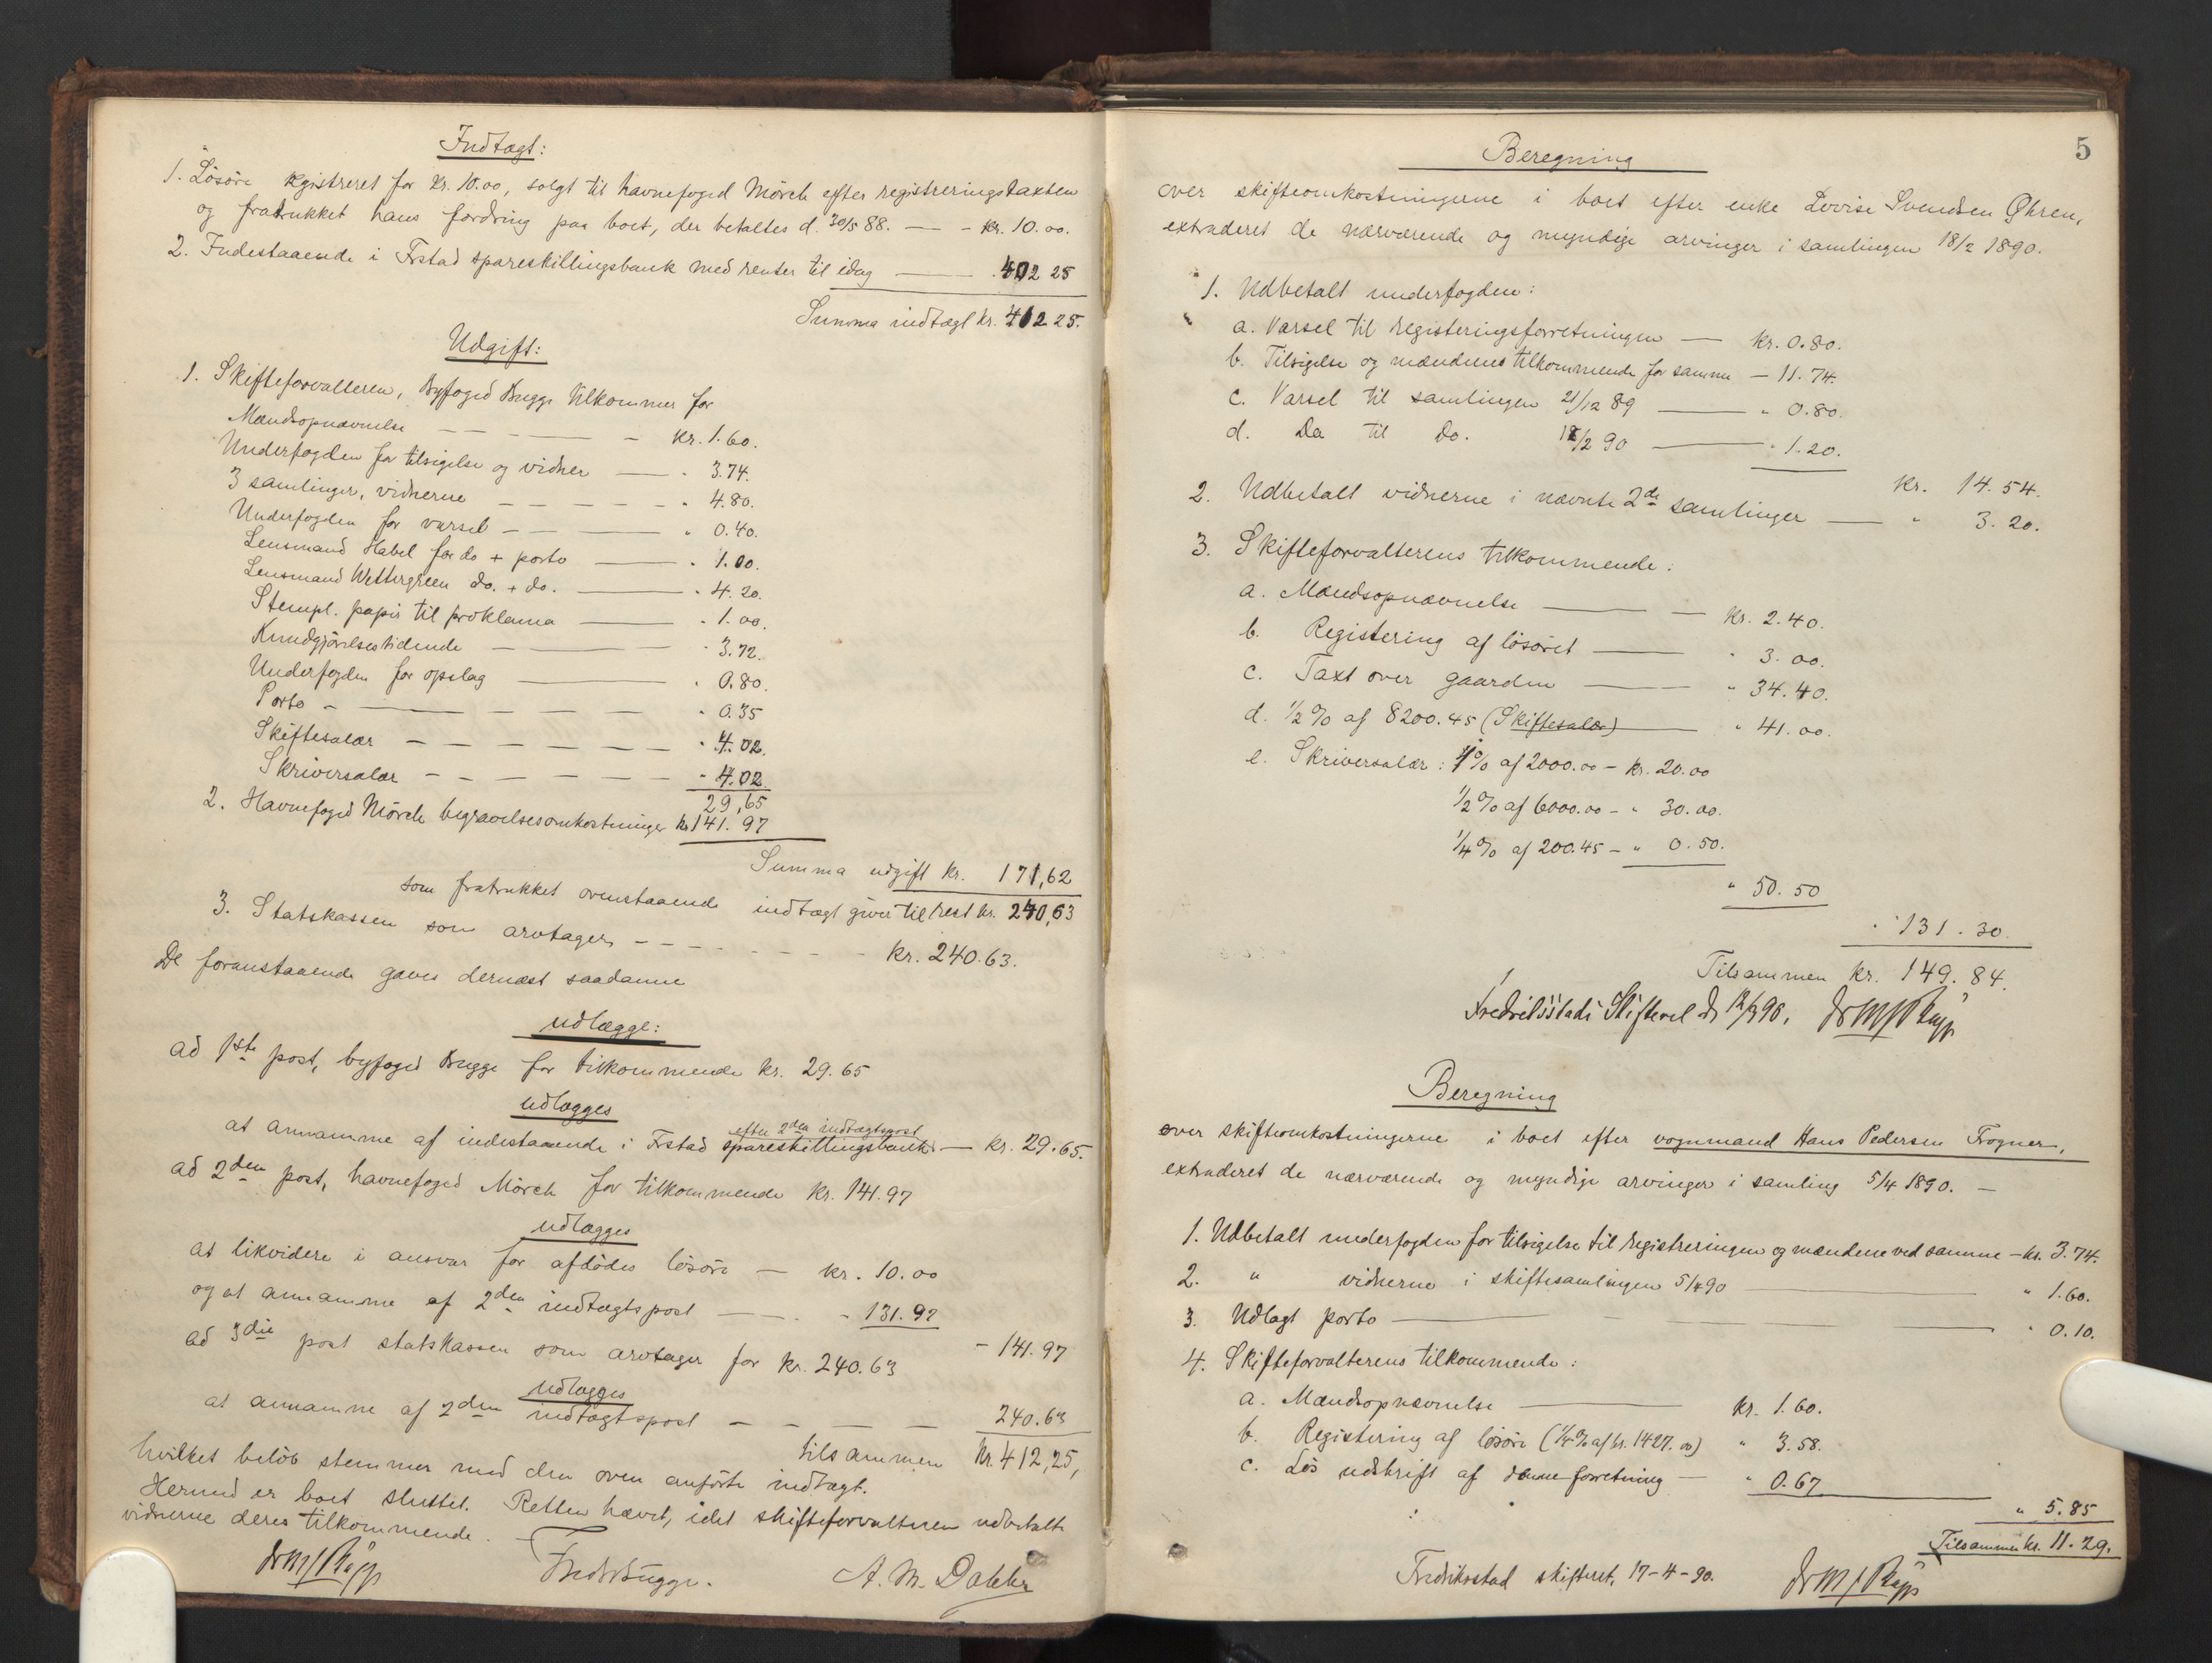 Indtægt:
1. Løsøre registreret for Kr. 10.00, solgt til havnefoged Mørch efter registreringstaxten
og fratrukket hans fordring paa boet, der betaltes d. 30/5 88. — - Kr. 10.00.
2. Indestaaende i Frstad spareskillingsbank med renter til idag — 402 25
Summa indtægt kr. 412 25.
Udgift:
1. Skifteforvalteren, Byfoged Bugge tilkommer for
Mændsopnævnelse — — kr. 1.60.
Underfogden for tilsigelse og vidner — " 3.74.
3 samlinger, vidnerne — — " 4.80.
Underfogden for varsel — — " 0.40.
Lensmand Habel for do + porto — " 1.00.
Lensmand Wettergreen do. + do. — " 4.20.
Stempl. papir til proklama — " 1.00.
Kundgjørelsestidende — " 3.72.
Underfogden for opslag — " 0.80.
Porto — " 0.35
Skiftesalær — " 4.02.
Skriversalær — " 4.02.
29,65
2. Havnefoged Mørch begravelsesomkostninger kr 141.97
Summa udgift kr. 171,62
som fratrukket ovenstaaende indtægt giver til rest kr. 240,63
3. Statskassen som arvtager — kr. 240.63.
De foranstaaende gaves dernæst saadanne
udlægge:
ad 1ste post, byfoged Bugge for tilkommende kr. 29.65
udlægges
efter 2den indtægtspost
at annamme af indestaaende i Frstad spareskillingsbank — kr. 29.65.
ad 2den post, havnefoged Mörch for tilkommende kr. 141.97
udlægges
at likvidere i ansvar for afdødes løsøre — kr. 10.00
og at annamme af 2den indtægtspost — " 131.97
- 141.97
ad 3die post statskassen som arvtager for kr. 240.63
udlægges
at annamme af 2den indtægtspost — — 240.63
tilsammen kr. 412,25,
hvilket beløb stemmer med den oven anførte indtægt.
Hermed er boet sluttet. Retten hævet, idet skifteforvalteren udbetalte
vidnerne deres tilkommende.
Fredr Bugge. A. M. Dahler
5
Beregning
over skifteomkostningerne i boet efter enke Lovise Svendsen Øhren,
extraderet de nærværende og myndige arvinger i samlingen 18/2 1890.
1. Udbetalt underfogden:
a. Varsel til registeringsforretningen — kr. 0.80.
b. Tilsigelse og mændenes tilkommende for samme — 11.74.
c. Varsel til samlingen 21/12 89 — " 0.80.
d. Do til do. 18/2 90 — " 1.20.
kr. 14.54.
2. Udbetalt vidnerne i nævnte 2de samlinger — " 3.20.
3. Skifteforvalterens tilkommende:
a. Mændsopnævnelse — kr. 2.40.
b. Registering af løsøret — " 3.00.
c. Taxt over gaarden — " 34.40.
d. 1/2 % af 8200.45 (Skiftesalær) — " 41.00.
e. Skriversalær: 1 % af 2000.00 — kr. 20.00
1/2 % af 6000.00 — " 30.00.
1/4 % af 200.45 — " 0.50.
" 50.50
" 131.30
Tilsammen kr. 149.84.
Beregning
over skifteomkostningerne i boet efter vognmand Hans Pedersen Trogner,
extraderet de nærværende og myndige arvinger i samling 5/4 1890. —
1. Udbetalt underfogden for tilsigelse til registreringen og mændene ved samme — kr. 3.74.
2. " vidnerne i skiftesamlingen 5/4 90 — " 1.60.
3. Udlagt porto — " 0.10.
4. Skifteforvalterens tilkommende:
a. Mændsopnævnelse — kr. 1.60.
b. Registering af løsøre (1/4 % af kr. 1427.00) " 3.58.
c. Løs udskrift af denne forretning — " 0.67
" 5.85
Tilsammen kr. 11.29.
Fredrikstad skifteret, 17-4-90.